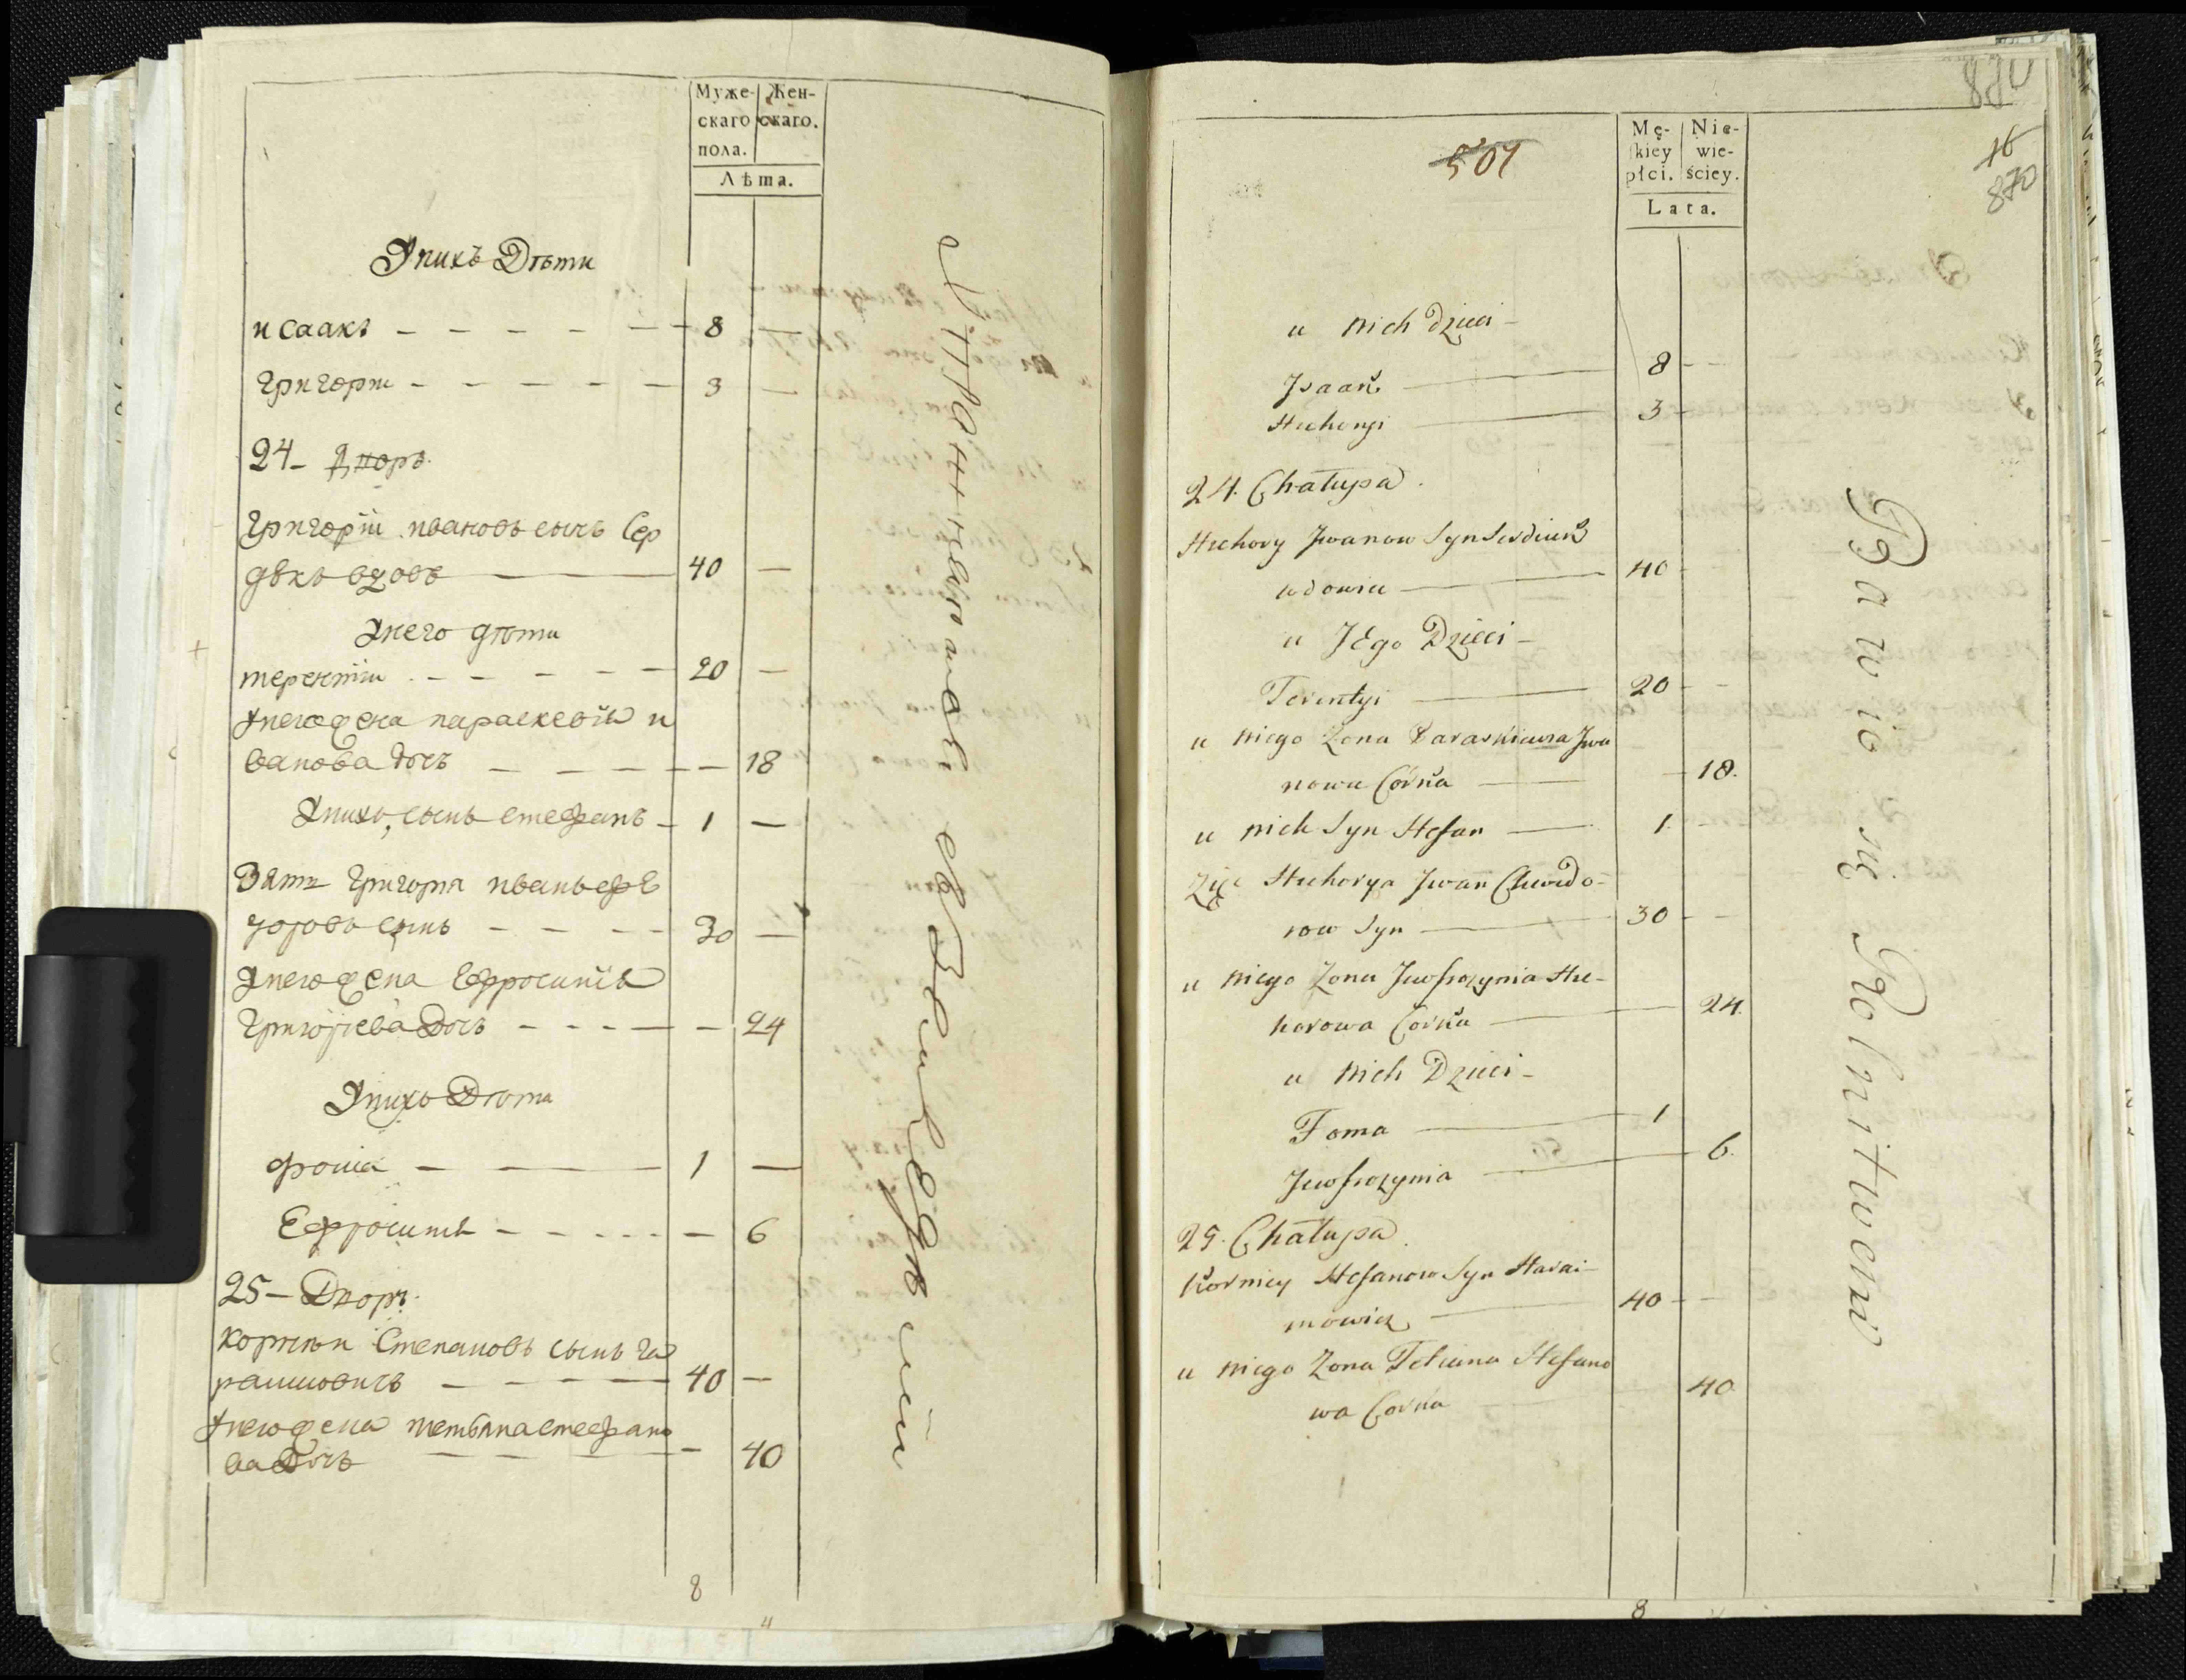 Муже- Жен-
скаго скаго.
пола.
Лѣта.
Унихъ Дѣти
исаакъ 8 —
григори 3 —
24 – Дворъ.
григорій ивановъ сынъ Сер
дюкъ вдовъ 40 —
Унего дѣти
терентіи 20 —
Унегожена параскевия и
ванова дочь — 18
Унихъ, сынъ стефанъ 1 —
Зять григорія иванъ фе
доровъ сынъ 30 —
Унегожена Ефросинія
григорієва Дочь — 24
Унихъ Дѣти
фома 1 —
Ефросинія — 6
25 – Дворъ.
корнѣи Степановъ сынъ га
расимовичъ 40 —
Унегожена тетьяна стефано
ва Дочь — 40
8
501
Mę- Nie-
skiey wie-
płci. ściey.
Lata.
16
870
u nich dzieci –
Isaak 8 –
Hrehoryi 3 –
24. Chałupa.
Hrehory Iwanow Syn Serdiuk
wdowiec 40 –
u Jego Dzieci –
Terentyi 20 –
u niego Zona Paraskiewia Iwa
nowa Corka – 18.
u nich Syn Stefan 1. –
Zięc Hrehorya Iwan Chwedo-
row Syn 30 –
u niego Zona Jewfrozynia Hre-
horowa Corka – 24.
u nich Dzieci –
Foma 1
Jewfrozynia 6.
25. Chałupa
Korniey Stefanow Syn Harai-
mowicz 40 –
u niego Zona Tetiana Stefano
wa Corka 40
Bawio się Rolnitwem
8